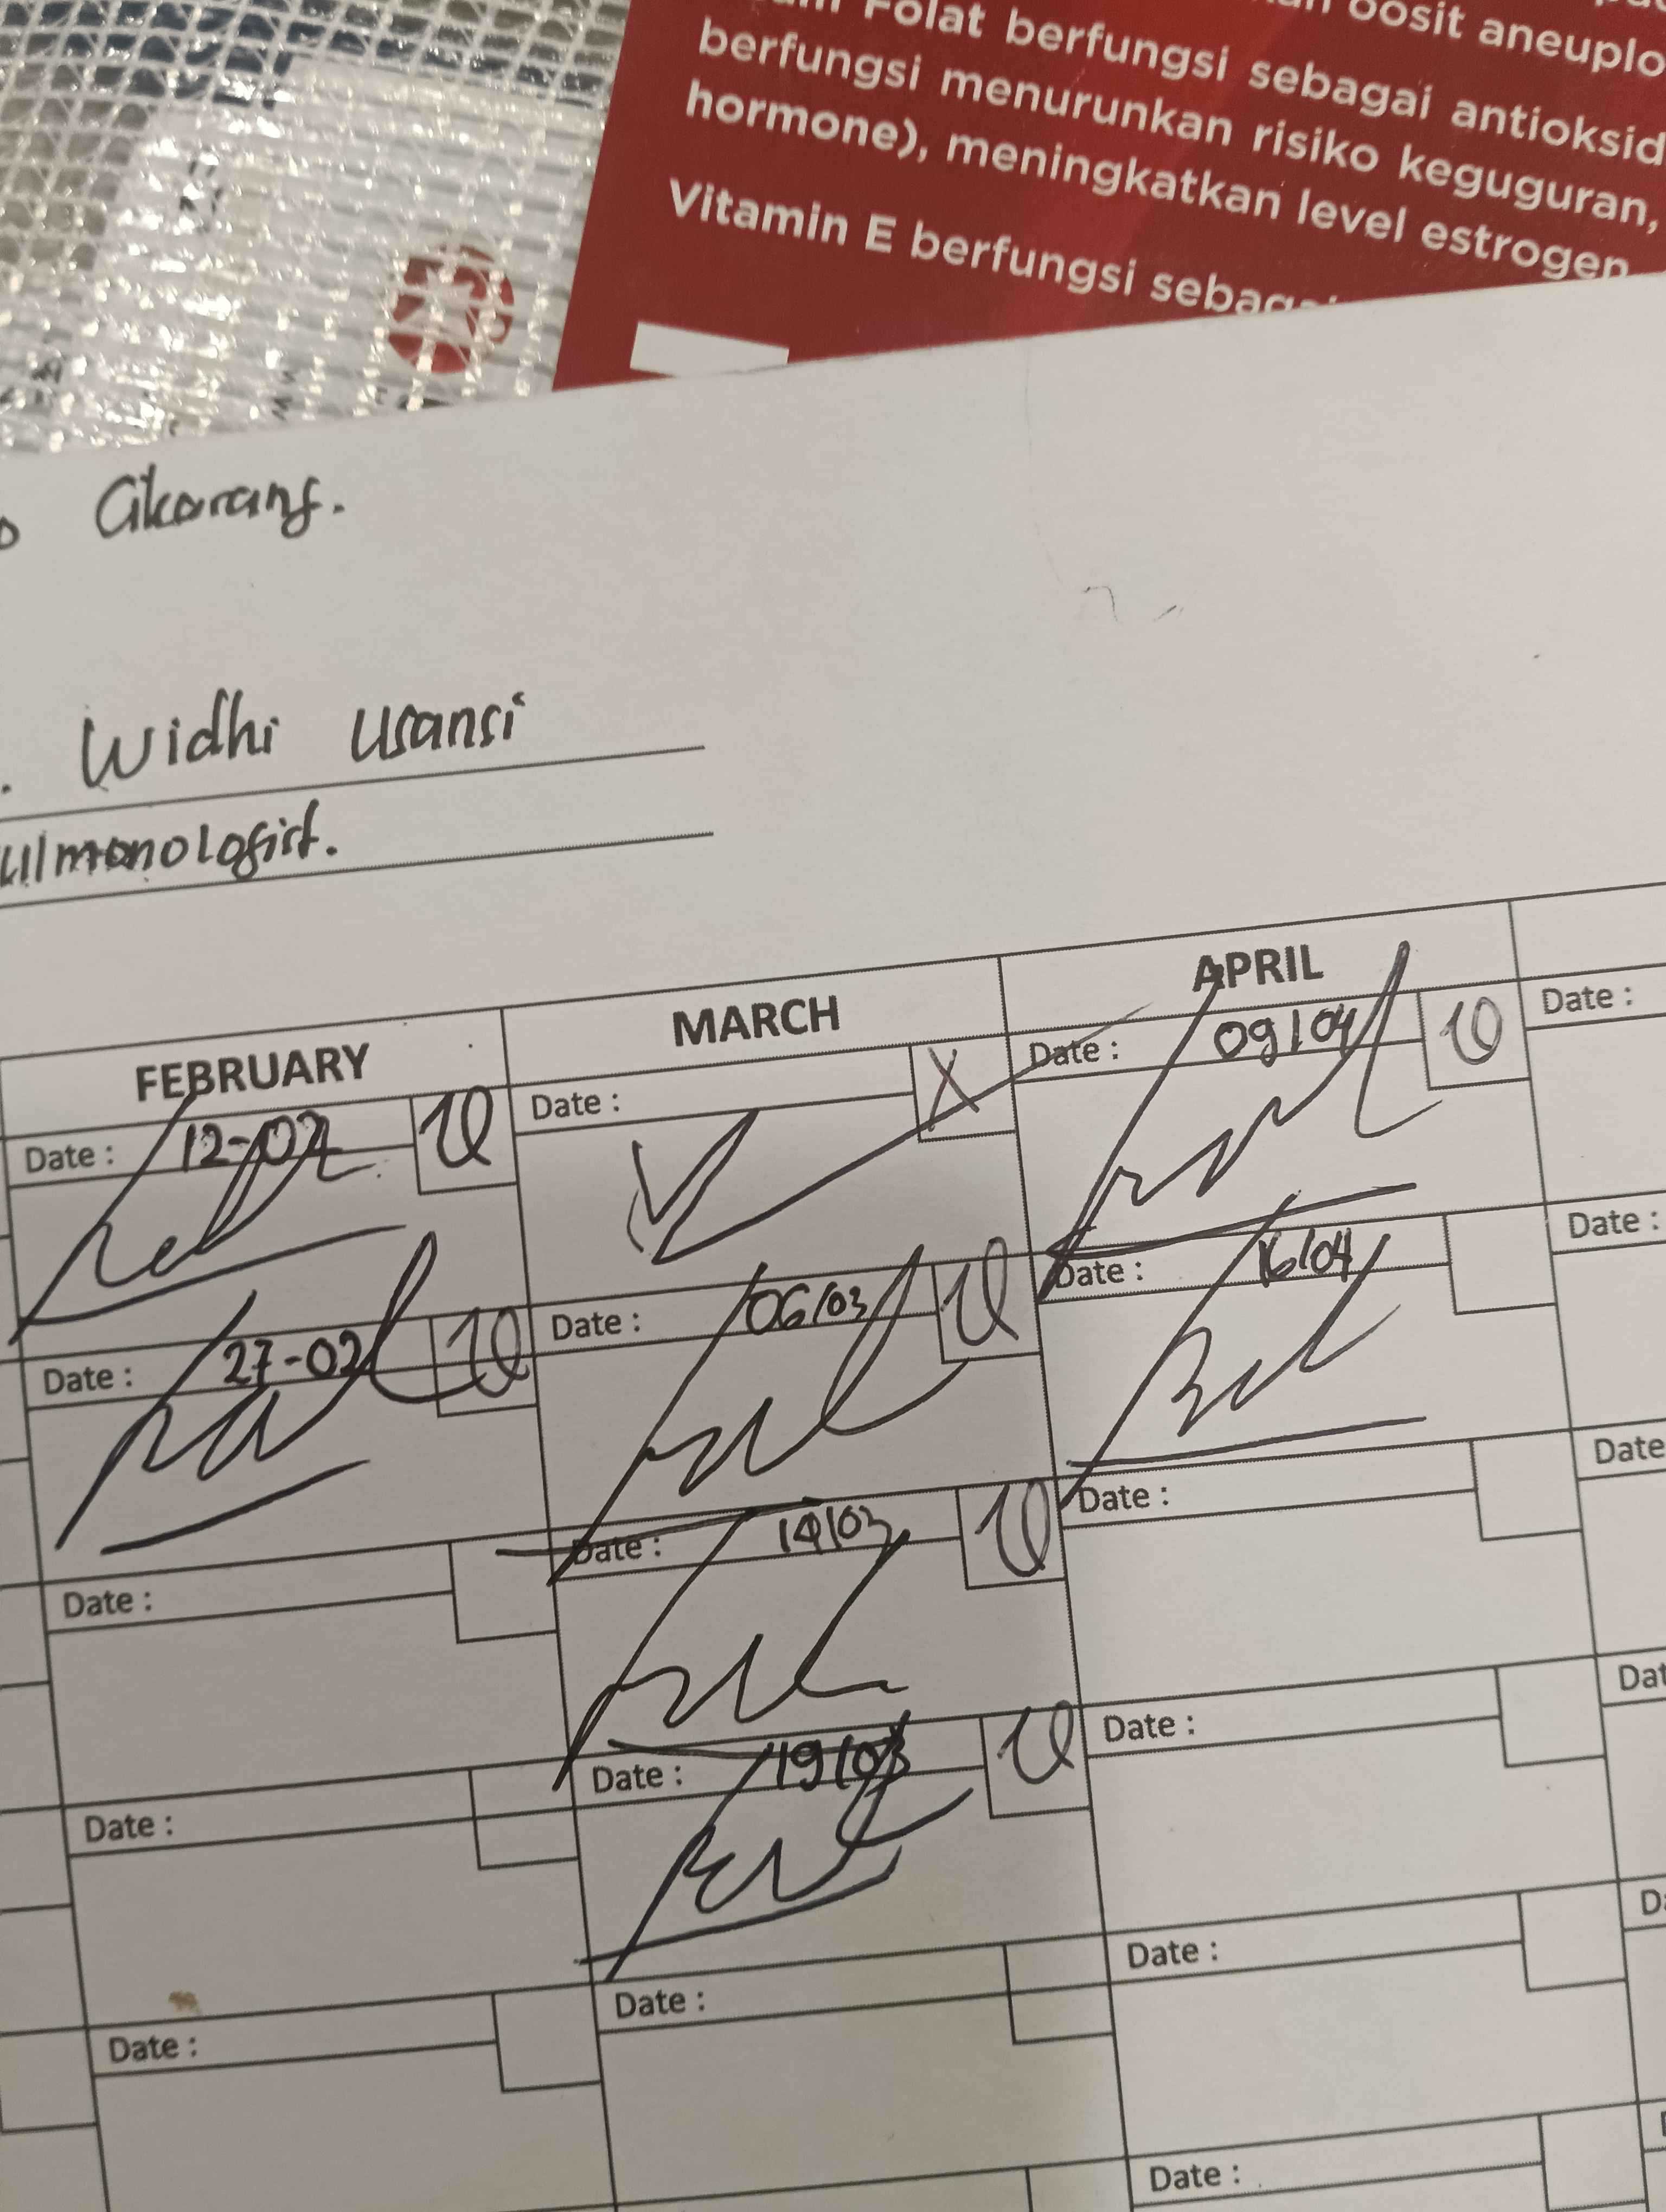 Folat berfungsi sebagai antioksid
berfungsi menurunkan risiko keguguran,
hormone), meningkatkan level estrogen
Vitamin E berfungsi
Cikarang.
Widhi
ulmonologist.
FEBRUARY MARCH APRIL
Date : 12-02 Date : X Date : 09/04 Date :
Date : 27-02 Date : 06/03 Date : 16/04 Date :
Date : Date : 14/03 Date : Date
Date : Date : 19/03 Date : Dat
Date : Date : Date :
Date :